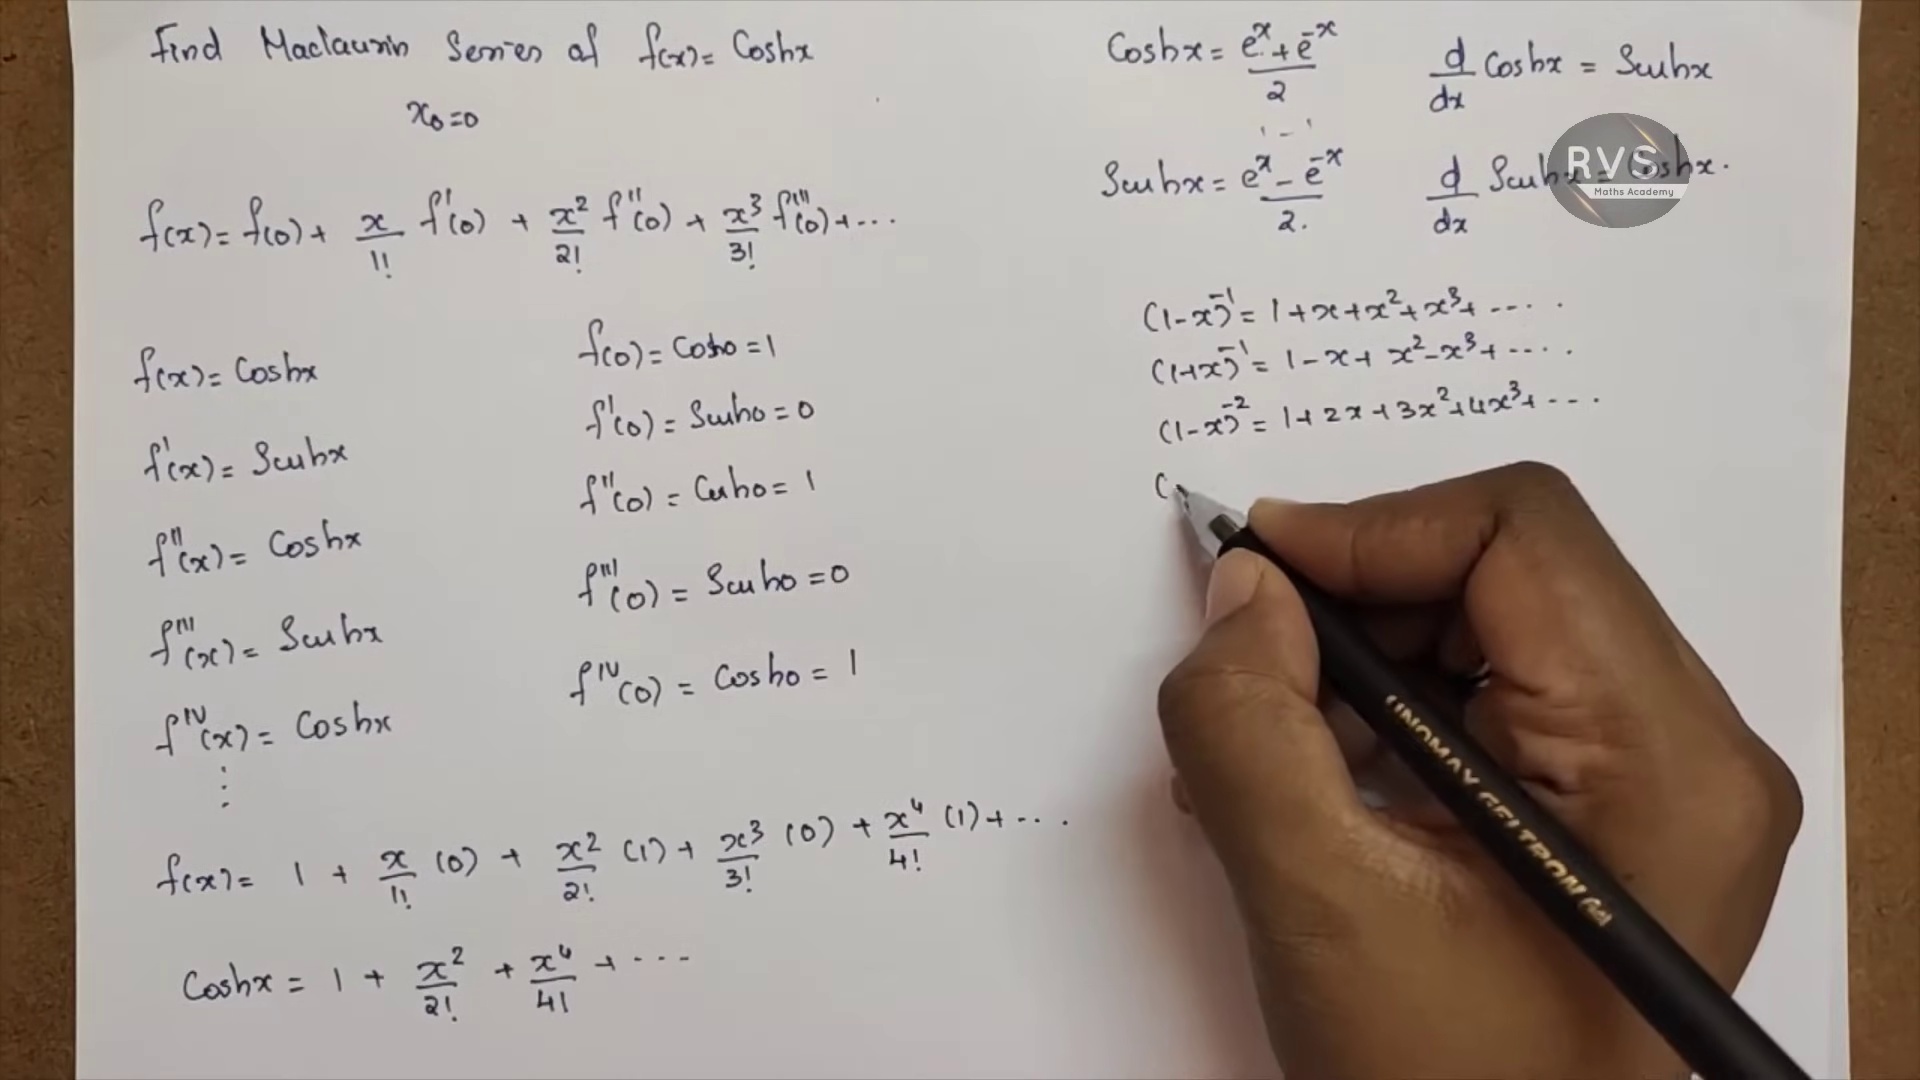 Find Maclaurin Series of f(x) = Coshx
x₀=0
f(x) = f(0) + x/1! f'(0) + x²/2! f''(0) + x³/3! f'''(0) + ...
f(x) = Coshx
f(0) = Cosh0 = 1
f'(x) = Sinhx
f'(0) = Sinh0 = 0
f''(x) = Coshx
f''(0) = Cosh0 = 1
f'''(x) = Sinhx
f'''(0) = Sinh0 = 0
f^IV(x) = Coshx
f^IV(0) = Cosh0 = 1
⋮
f(x) = 1 + x/1! (0) + x²/2! (1) + x³/3! (0) + x⁴/4! (1) + ...
Coshx = 1 + x²/2! + x⁴/4! + ...
Coshx = (e^x + e^-x)/2
d/dx Coshx = Sinhx
Sinhx = (e^x - e^-x)/2.
d/dx Sinhx = Coshx.
RVS
Maths Academy
(1-x)^-1 = 1+x+x²+x³+ .....
(1+x)^-1 = 1-x+x²-x³+ .....
(1-x)^-2 = 1+2x+3x²+4x³+ ....
(
UNOMAX GELTRON Gel